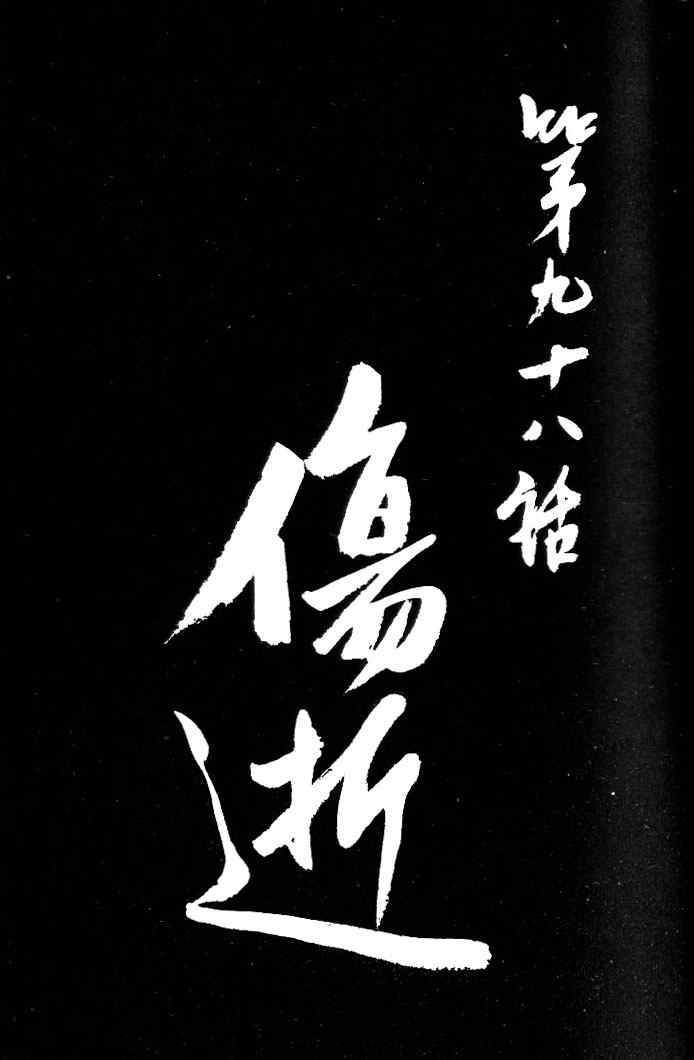 第九十八話
傷逝